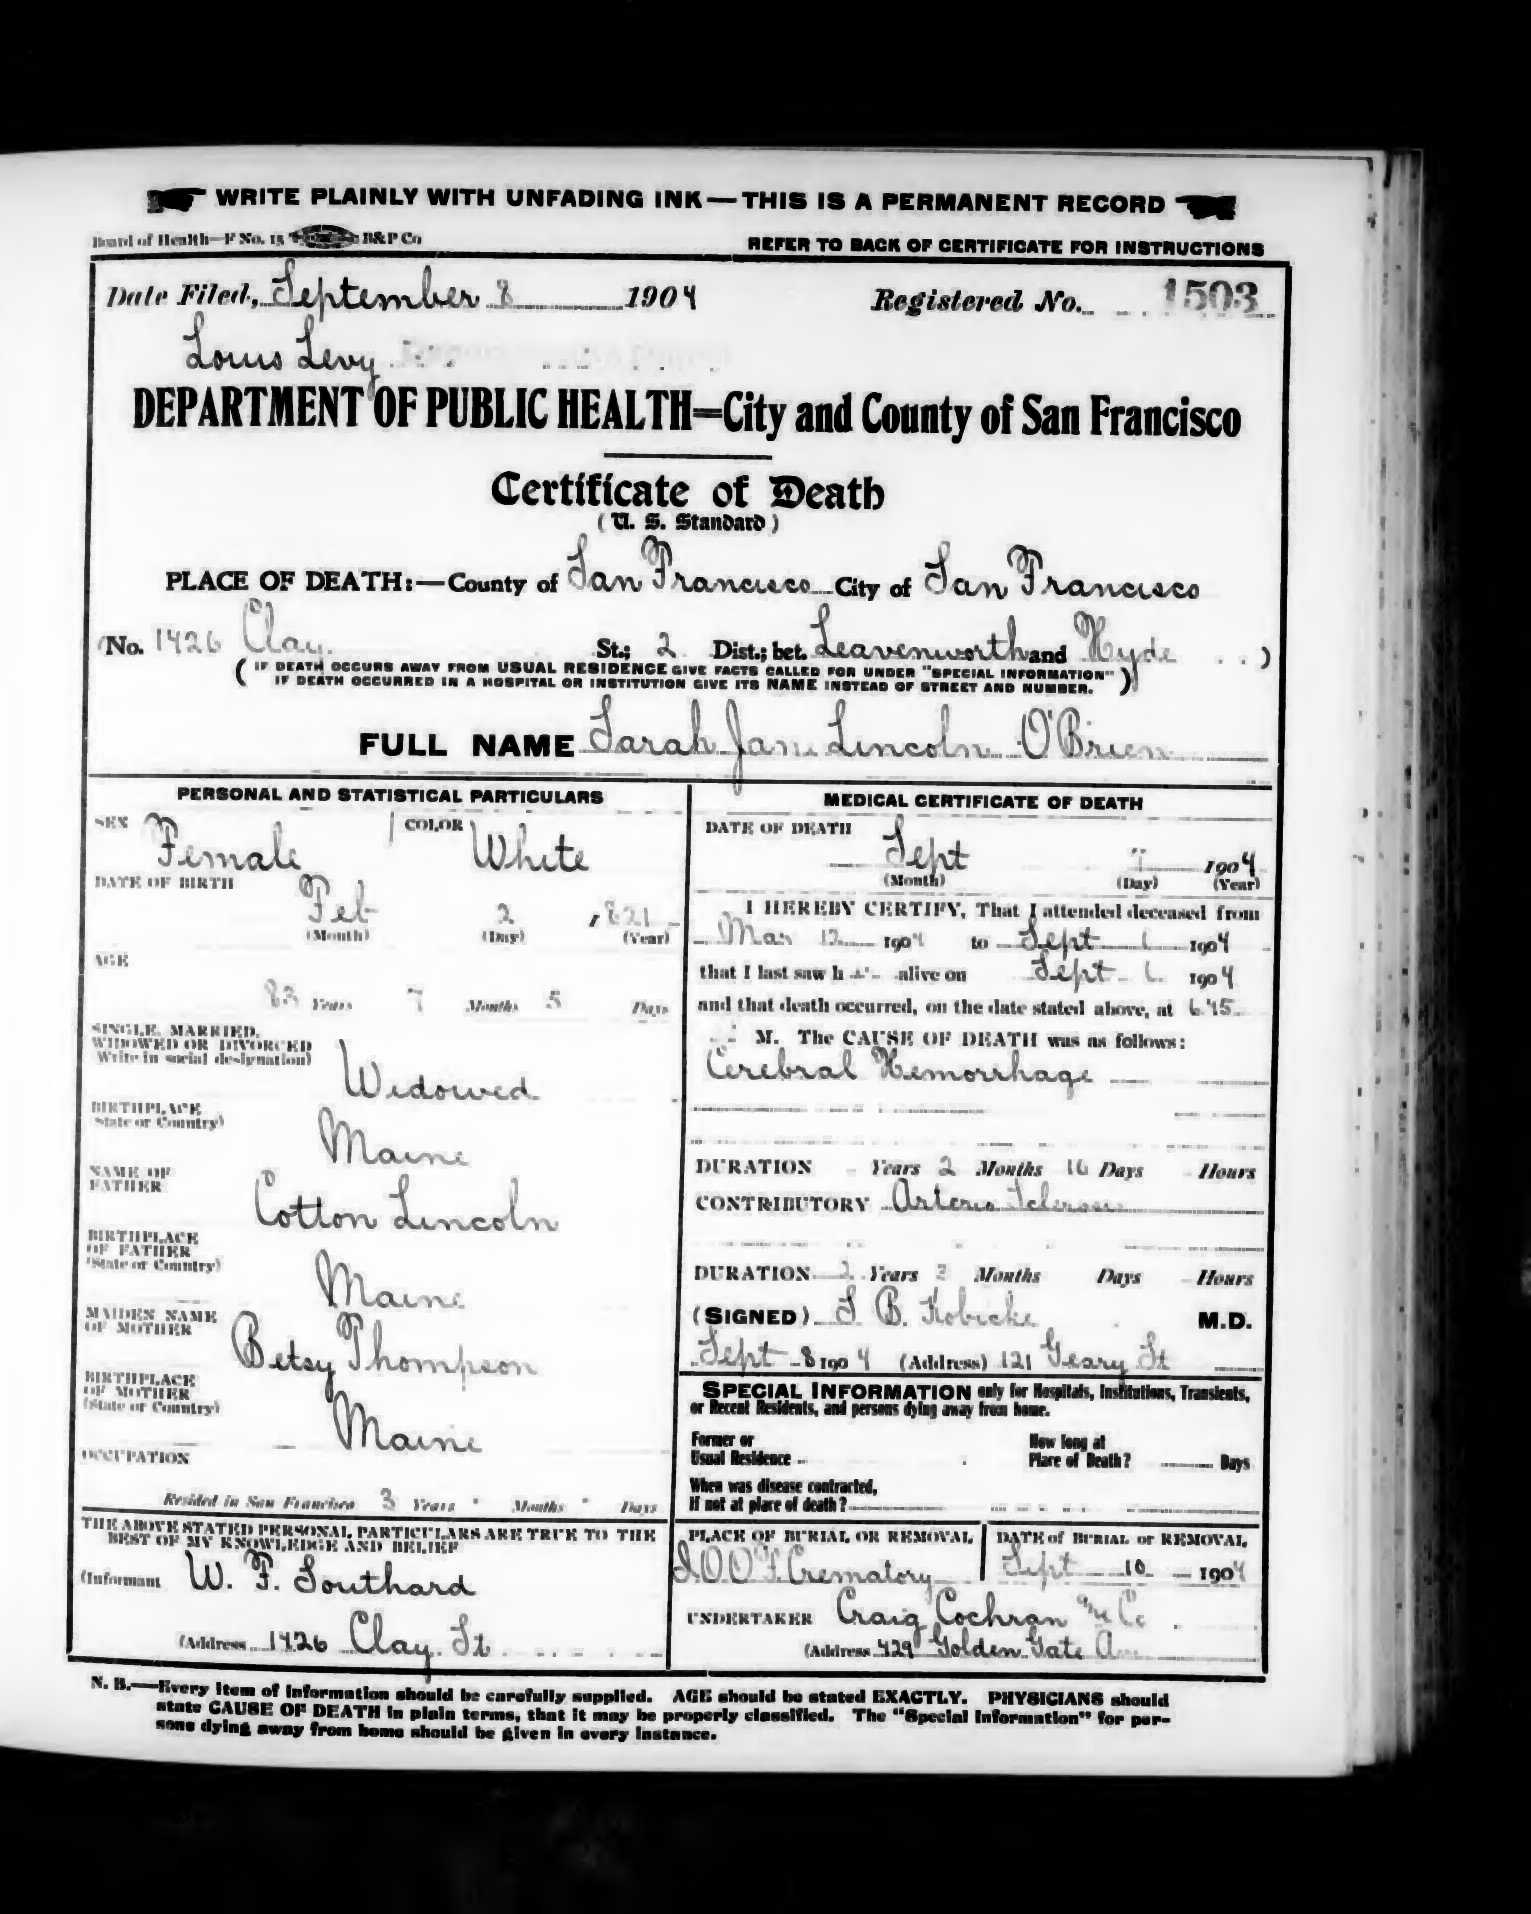 WRITE PLAINLY WITH UNFADING INK—THIS IS A PERMANENT RECORD
Board of Health—F No. 15 B&P Co
REFER TO BACK OF CERTIFICATE FOR INSTRUCTIONS
Date Filed, September 8 1904 Registered No. 1503
Louis Levy
DEPARTMENT OF PUBLIC HEALTH—City and County of San Francisco
Certificate of Death
(U. S. Standard)
PLACE OF DEATH:—County of San Francisco City of San Francisco
(No. 1426 Clay St.; 2 Dist.; bet. Leavenworth and Hyde )
( IF DEATH OCCURS AWAY FROM USUAL RESIDENCE GIVE FACTS CALLED FOR UNDER "SPECIAL INFORMATION"
IF DEATH OCCURRED IN A HOSPITAL OR INSTITUTION GIVE ITS NAME INSTEAD OF STREET AND NUMBER. )
FULL NAME Sarah Jane Lincoln O'Brien
PERSONAL AND STATISTICAL PARTICULARS
SEX Female COLOR White
DATE OF BIRTH
Feb 2 1821
(Month) (Day) (Year)
AGE
83 Years 7 Months 5 Days
SINGLE, MARRIED,
WIDOWED OR DIVORCED
Write in social designation)
Widowed
BIRTHPLACE
State or Country)
Maine
NAME OF
FATHER
Cotton Lincoln
BIRTHPLACE
OF FATHER
(State or Country)
Maine
MAIDEN NAME
OF MOTHER
Betsy Thompson
BIRTHPLACE
OF MOTHER
(State or Country)
Maine
OCCUPATION
Resided in San Francisco 3 Years - Months - Days
THE ABOVE STATED PERSONAL PARTICULARS ARE TRUE TO THE
BEST OF MY KNOWLEDGE AND BELIEF
(Informant W. F. Southard
(Address 1426 Clay St
MEDICAL CERTIFICATE OF DEATH
DATE OF DEATH
Sept 7 1904
(Month) (Day) (Year)
I HEREBY CERTIFY, That I attended deceased from
Mar 12 1904 to Sept 1904
that I last saw h alive on Sept 1904
and that death occurred, on the date stated above, at 6.45
M. The CAUSE OF DEATH was as follows:
Cerebral Hemorrhage
DURATION Years 2 Months 16 Days Hours
CONTRIBUTORY Arterio Sclerosis
DURATION 2 Years Months Days Hours
(SIGNED) B. Kobicke M.D.
Sept 8 1904 (Address) 121 Geary St
SPECIAL INFORMATION only for Hospitals, Institutions, Transients,
or Recent Residents, and persons dying away from home.
Former or
Usual Residence
How long at
Place of Death? Days
When was disease contracted,
If not at place of death?
PLACE OF BURIAL OR REMOVAL
I.O.O.F. Crematory
DATE of BURIAL or REMOVAL
Sept 10 1904
UNDERTAKER Craig Cochran and Co
(Address 429 Golden Gate
N. B.—Every item of information should be carefully supplied. AGE should be stated EXACTLY. PHYSICIANS should
state CAUSE OF DEATH in plain terms, that it may be properly classified. The "Special Information" for per-
sons dying away from home should be given in every instance.